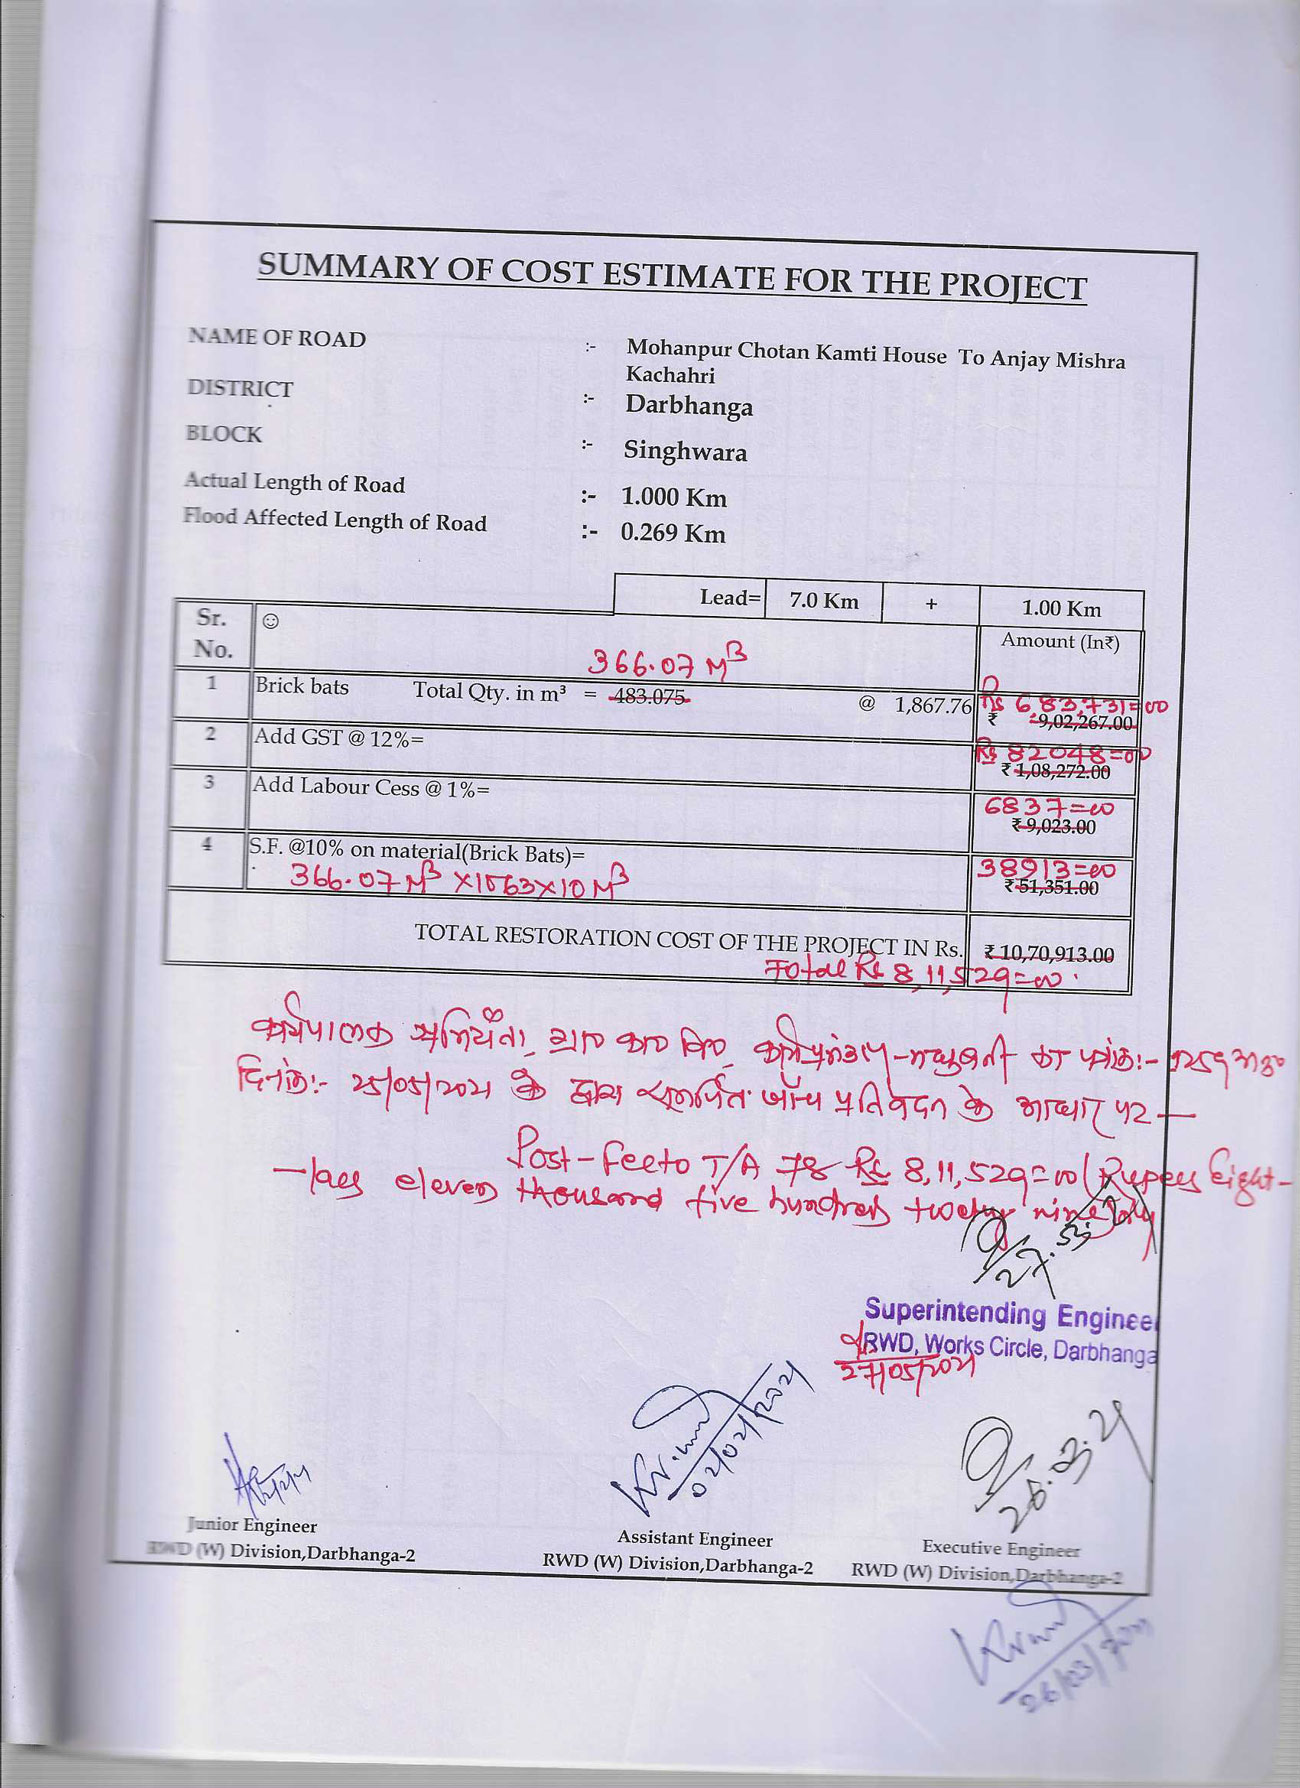 SUMMARY OF COST ESTIMATE FOR THE PROJECT
NAME OF ROAD :- Mohanpur Chotan Kamti House To Anjay Mishra
Kachahri
DISTRICT :- Darbhanga
BLOCK :- Singhwara
Actual Length of Road :- 1.000 Km
Flood Affected Length of Road :- 0.269 Km
Lead= 7.0 Km + 1.00 Km
Sr. No. ☺ Amount (In₹)
366.07 M³
1 Brick bats Total Qty. in m³ = 483.075 @ 1,867.76 ₹ 9,02,267.00
Rs 6,83,731=00
2 Add GST @ 12%= ₹ 1,08,272.00
Rs 82048=00
3 Add Labour Cess @ 1%= ₹ 9,023.00
6837=00
4 S.F. @10% on material(Brick Bats)= ₹ 51,351.00
38913=00
366.07 M³ x1063x10 M³
TOTAL RESTORATION COST OF THE PROJECT IN Rs. ₹ 10,70,913.00
Total Rs 8,11,529=00
कार्यपालक अभियंता, का पत्रांक:-
दिनांक:- 25/05/2021 के द्वारा समर्पित जाँच प्रतिवेदन के आधार पर —
Post-feeto T/A Rs 8,11,529=00 (Rupees Eight-
-lacs eleven thousand five hundred twenty nine only
Superintending Enginee
RWD, Works Circle, Darbhanga
27/05/2021
02/02/2021
Junior Engineer
RWD (W) Division,Darbhanga-2
Assistant Engineer
RWD (W) Division,Darbhanga-2
Executive Engineer
RWD (W) Division,Darbhanga-2